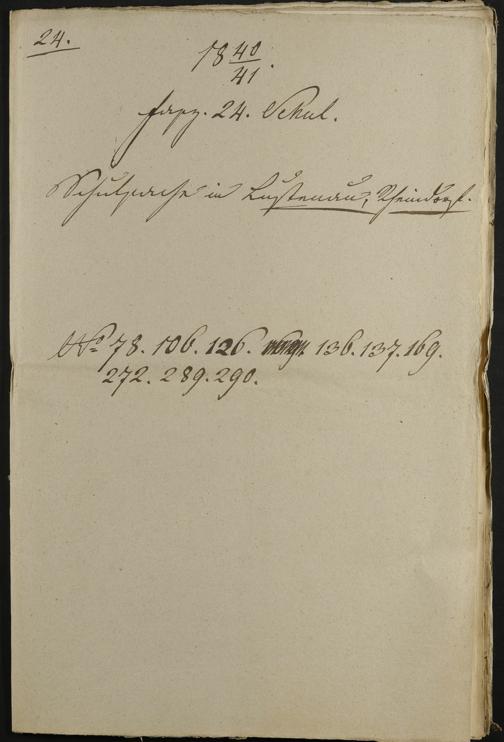 24.
18 40/41.
Fasz. 24. Schul.
Schulsache in Lustenau, Rheindorf.
No 78. 106. 126. 136. 137. 169.
272. 289. 290.